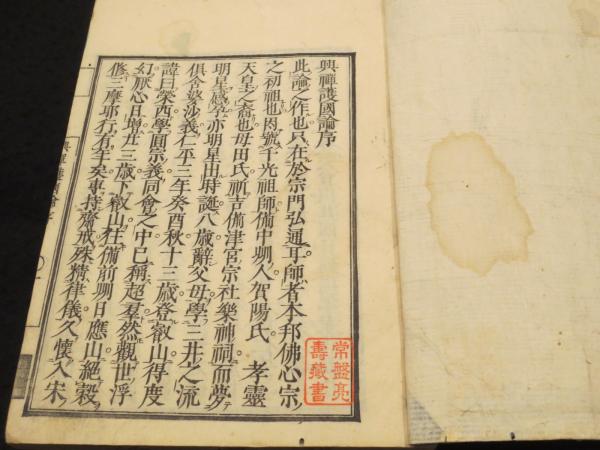 興禪護國論序
此論之作也只在於宗門弘通耳師者本邦佛心宗
之初祖也因號千光祖師備中州人賀陽氏孝靈
天皇之裔也母田氏祈吉備津宮宗社樂神祠而夢
明星感孕亦明星出時誕八歲辭父母學三井之流
俱舍婆沙義仁平三年癸酉秋十三歲登叡山得度
諱曰榮西學圓宗義同會之中已稱超羣然觀世浮
幻厭心日增廿三歲下叡山往備前州日應山絕穀
修三摩耶行有年矣專持齋戒殊精律儀久懷入宋
常盤亮
壽藏書